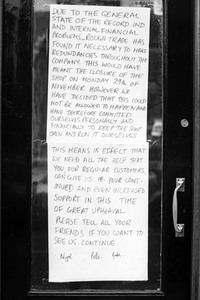 DUE TO THE GENERAL
STATE OF THE RECORD IND
AND INTERNAL FINANCIAL
PROBLEMS, ROUGH TRADE HAS
FOUND IT NECESSARY TO MAKE
REDUNDANCIES THROUGHOUT THE
COMPANY. THIS WOULD HAVE
MEANT THE CLOSURE OF THE
SHOP ON MONDAY 29th OF
NOVEMBER. HOWEVER WE
HAVE DECIDED THAT THIS COULD
NOT BE ALLOWED TO HAPPEN AND
HAVE THEREFORE COMMITTED
OURSELVES PERSONALLY AND
FINANCIALLY TO KEEP THE SHOP
OPEN AND RUN IT OURSELVES
THIS MEANS IN EFFECT THAT
WE NEED ALL THE HELP THAT
YOU, OUR REGULAR CUSTOMERS,
CAN GIVE US. YOUR CONT-
INUED AND EVEN INCREASED
SUPPORT IN THIS TIME
OF GREAT UPHEAVAL.
PLEASE TELL ALL YOUR
FRIENDS IF YOU WANT TO
SEE US CONTINUE
Nigel Pete